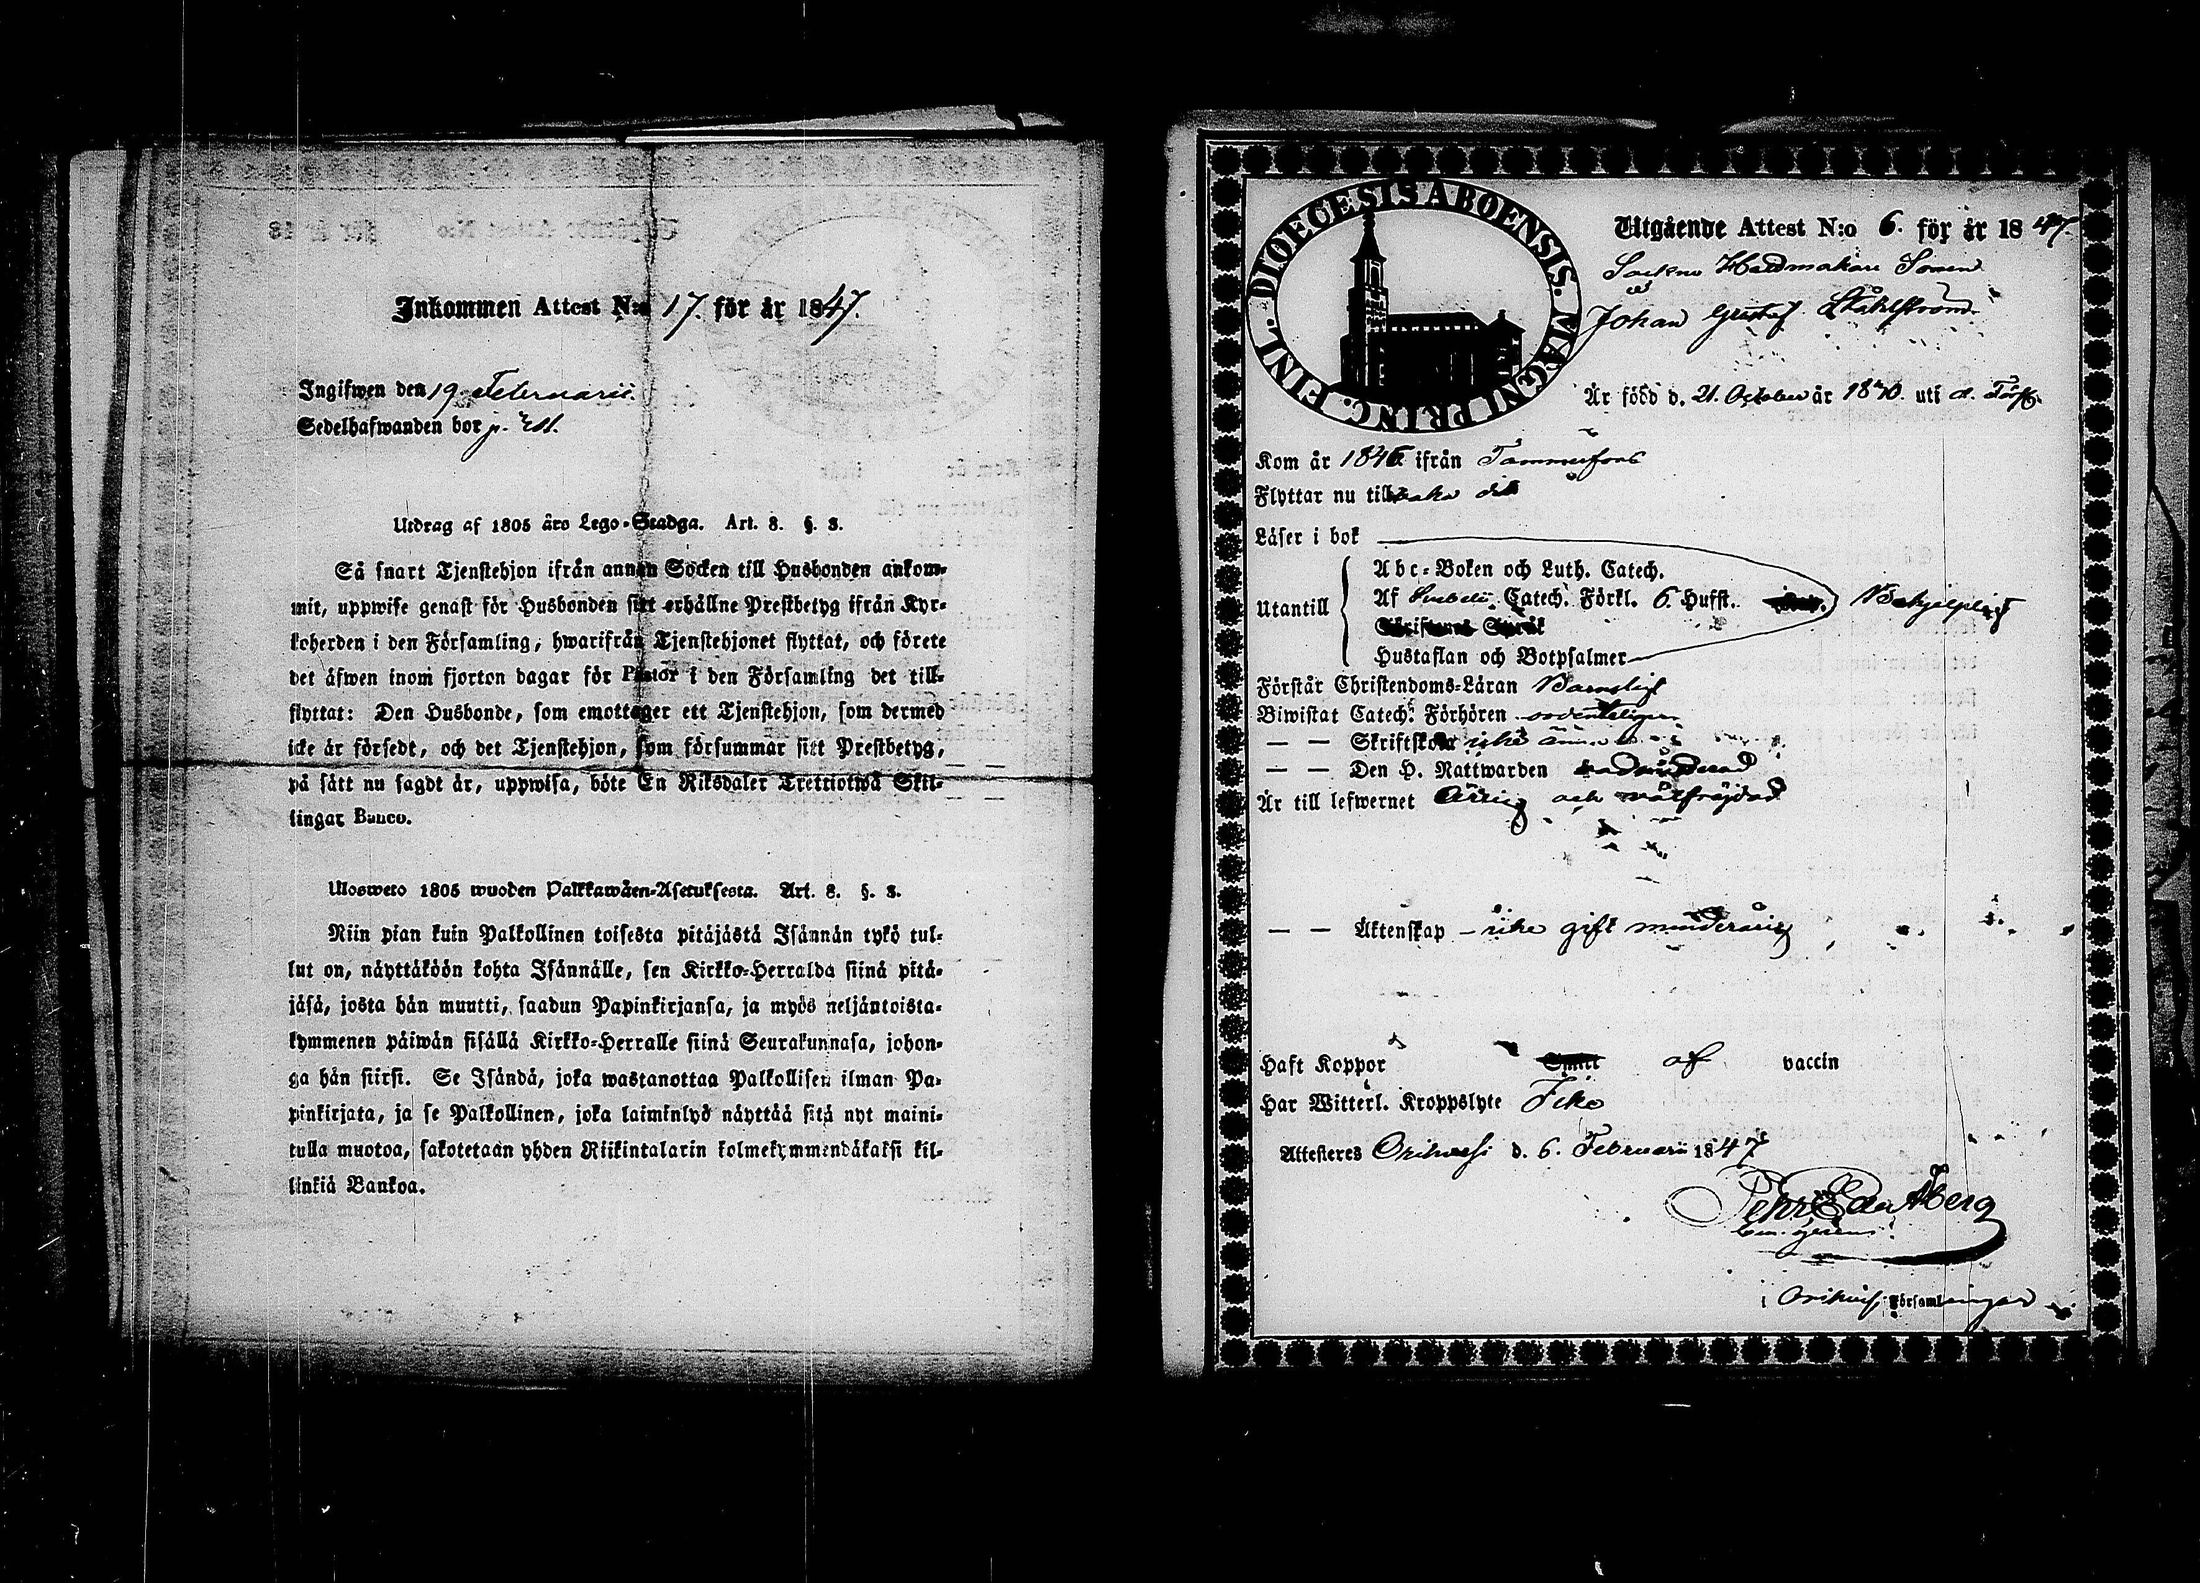 Inkommen Attest N:o 17. för år 1847.
Ingifwen den 19 Februarii.
Sedelhafwanden bor
Utdrag af 1805 års Lego-Stadga. Art. 8. §. 3.
Så snart Tjenstehjon ifrån annan Socken till Husbonden ankom-
mit, uppwise genast för Husbonden sitt erhållne Prestbetyg ifrån Kyr-
koherden i den Församling, hwarifrån Tjenstehjonet flyttat, och förete
det äfwen inom fjorton dagar för Pastor i den Församling det till-
flyttat: Den Husbonde, som emottager ett Tjenstehjon, som dermed
icke är försedt, och det Tjenstehjon, som försummar sitt Prestbetyg,
på sätt nu sagdt är, uppwisa, böte En Riksdaler Trettiotwå Skil-
lingar Banco.
Ulosweto 1805 wuoden Palkkawäen-Asetuksesta. Art. 8. §. 3.
Niin pian kuin Palkollinen toisesta pitäjästä Isännän tykö tul-
lut on, näyttäköön kohta Isännälle, sen Kirkko-Herralda siinä pitä-
jäsä, josta hän muutti, saadun Papinkirjansa, ja myös neljäntoista-
kymmenen päiwän sisällä Kirkko-Herralle siinä Seurakunnasa, johon-
ga hän siirsi. Se Isändä, joka wastanottaa Palkollisen ilman Pa-
pinkirjata, ja se Palkollinen, joka laiminlyö näyttää sitä nyt maini-
tulla muotoa, sakotetaan yhden Riikintalarin kolmekymmendäkaksi kil-
linkiä Bankoa.
DIOECESIS ABOENSIS. MAGNI PRINC. FINL.
Utgående Attest N:o 6. för år 1847.
Sonen
Johan Gustaf Ståhlström
Är född d. 21. October år 1840. uti d. Förs.
Kom år 1846 ifrån Tammerfors
Flyttar nu tillbaka dit
Läser i bok
Utantill
Abc-Boken och Luth. Catech.
Af Catech. Förkl. 6. Hufst. Behjelpligt
Hustaflan och Botpsalmer
Förstår Christendoms-Läran Barnsligt
Biwistat Catech: Förhören ordenteligen
— — Skriftskola icke ännu
— — Den H. Nattwarden oadmitterad
Är till lefwernet Ärlig och wälfrejdad
— — Äktenskap – icke gift minderårig
Haft Koppor af vaccin
Har Witterl. Kroppslyte Icke
Attesteres Orihvesi d. 6. Februarii 1847
Pehr Edv. Åberg
i Orihvesi Församlingar